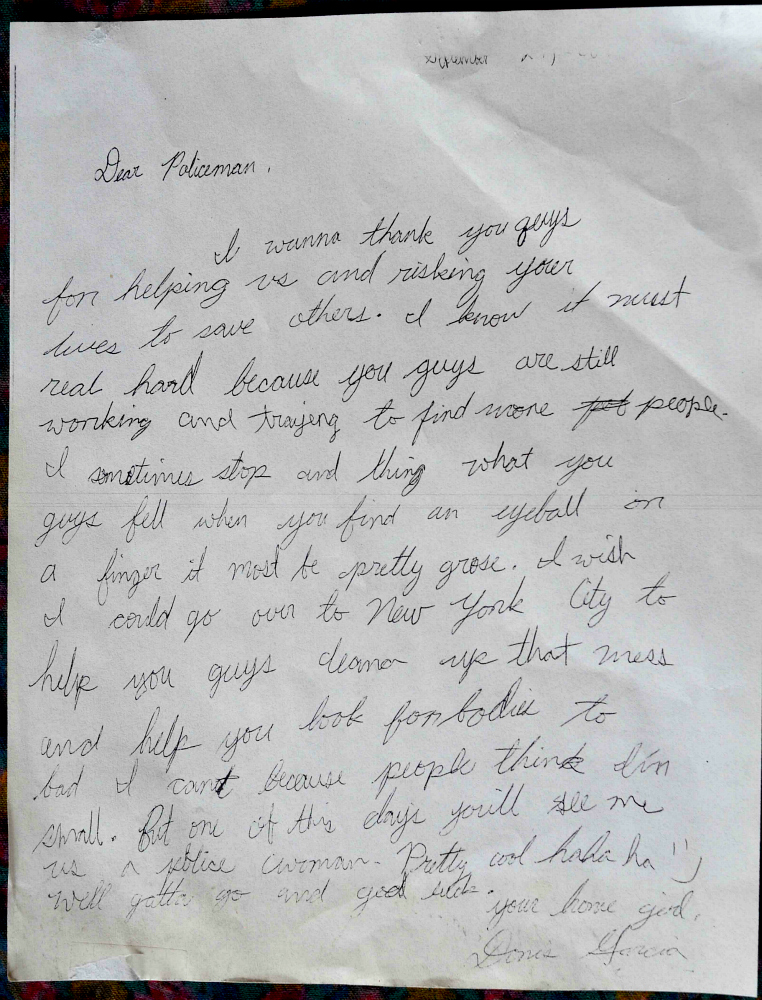 September
Dear Policeman,
I wanna thank you guys
for helping us and risking your
lives to save others. I know it must
real hard because you guys are still
working and trajeng to find more people.
I sometimes stop and thing what you
guys fell when you find an eyeball or
a finger it most be pretty grose. I wish
I could go over to New York City to
help you guys cleana up that mess
and help you look for bodies to
bad I cant because people think I'm
small. But one of this days you'll see me
us a police woman. Pretty cool haha ha :)
well gatta go and good luck.
your home girl,
Garcia